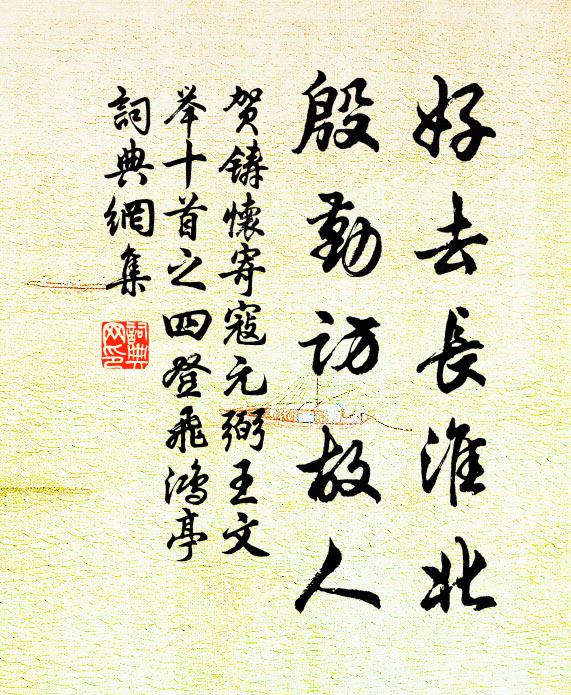 好去長淮北
殷勤訪故人
賀鑄懷寄寇元弼王文
举十首之四登飛鴻亭
詞典網集
詞典網印